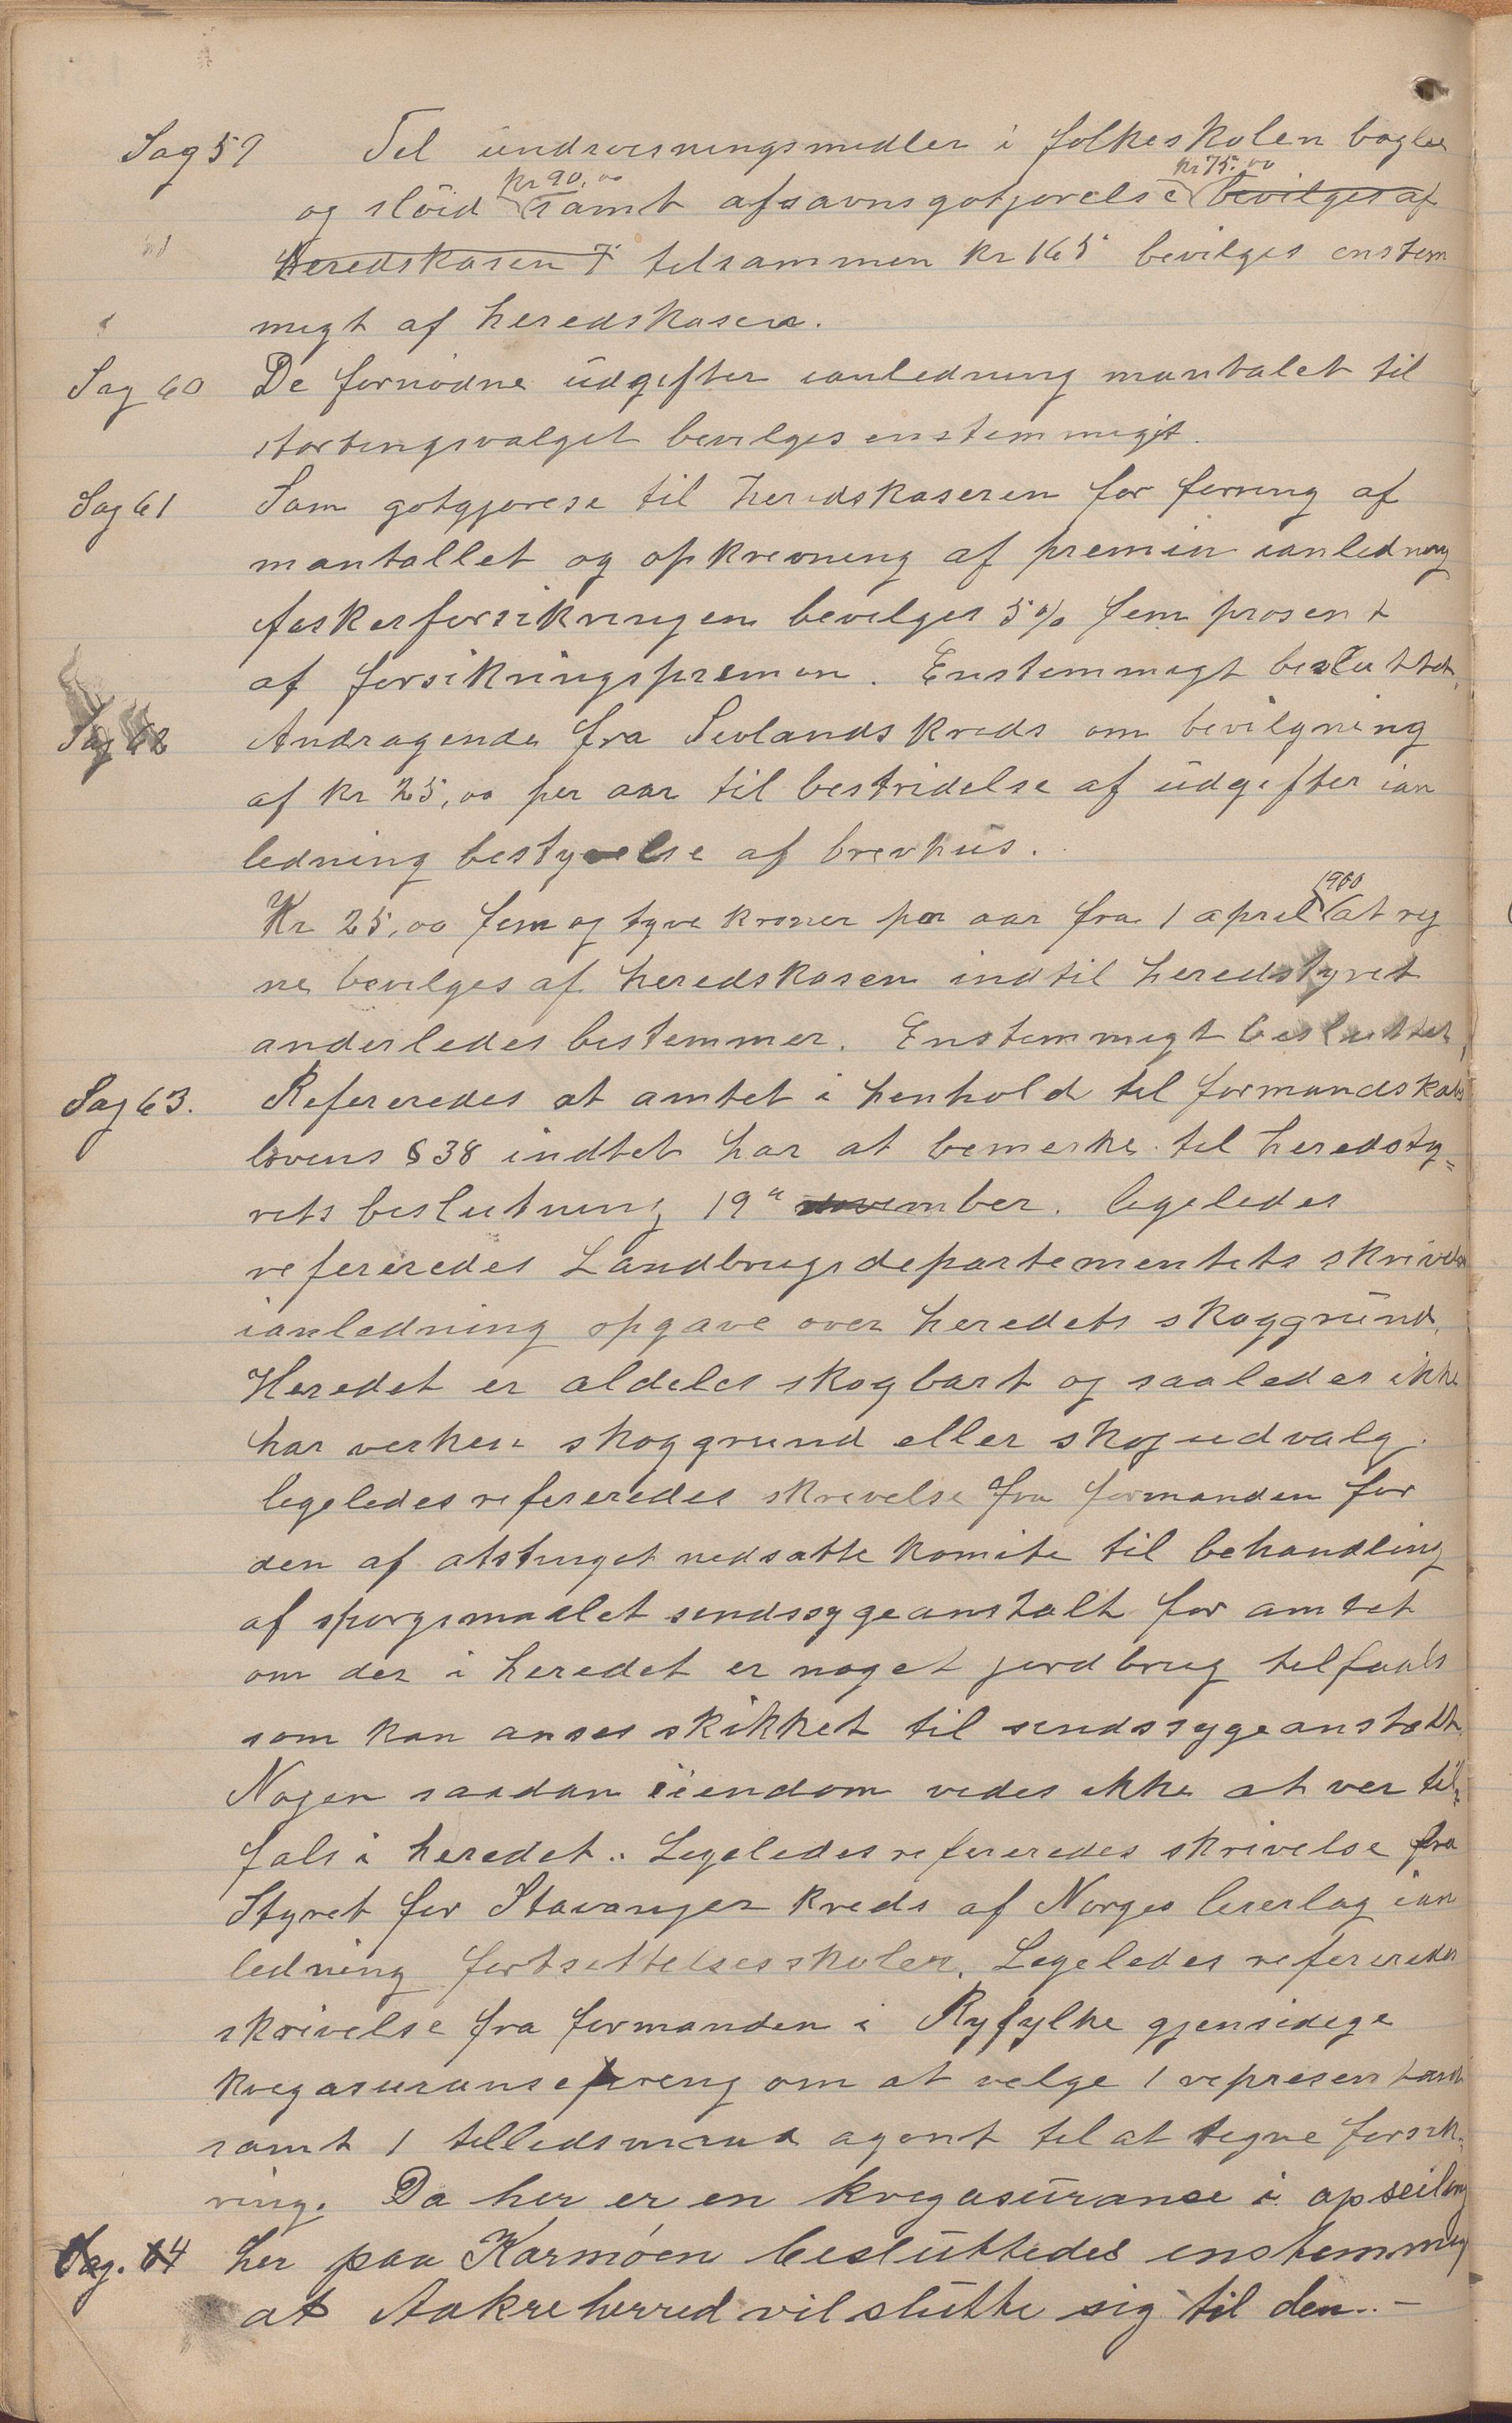 Sag 59 Til undervisningsmidler i folkeskolen boglee
og slöid kr 90,00 samt afsavnsgotjorelse kr 75,00 bevilges af
heredskasen 7 tilsammen kr 165 bevilges enstem
migt af heredskasen.
Sag 60 De fornödne udgifter ianledning mantalet til
stortingsvalget bevilges enstemmigt.
Sag 61 Som gotgjorese til heredskaseren for foring af
mantallet og opkrevning af premien ianledning
fiskerforsikringen bevilges 5% fem prosent
af forsikringspremien. Enstemmigt besluttet.
Sag 62 Andragende fra Sevlandskreds om bevilgning
af kr 25,00 per aar til bestridelse af udgifter ian
ledning bestyrelse af brevhus.
Kr 25,00 fem og tyve kroner per aar fra 1 april 1900 at reg
ne bevilges af heredskasen indtil heredstyret
anderledes bestemmer. Enstemmigt besluttet,
Sag 63. Refereredes at amtet i henhold til formandskabs
lovens § 38 indtet har at bemerke til heredsty=
rets beslutning 19 november. ligeledes
refereredes Landbrugsdepartementets skrivelse
ianledning opgave over heredets skoggrund.
Heredet er aldeles skogbart og saaledes ikke
har verken skoggrund eller skogudvalg.
ligeledes refereredes skrivelse fra formanden for
den af atstinget nedsatte komite til behandling
af sporgsmaalet sindssygeanstalt for amtet
om der i heredet er noget jordbrug tilfaals
som kan anses skikket til sindssygeanstalt.
Nogen saadan eiendom vides ikke at ver til=
fals i heredet. Ligeledes refereredes skrivelse fra
Styret for Stavanger kreds af Norges lererlag ian
ledning fortsettelsesskoler. Ligeledes refereredes
skrivelse fra formanden i Ryfylke gjensidige
kvegasuransefoреng om at velge 1 representant
samt 1 tillidsmand agent til at tegne forsik=
ring. Da her er en kvegasuranse i opseiling
Sag. 64 her paa Karmöen besluttedes enstemmig
at Aakre herred vil slutte sig til den. -